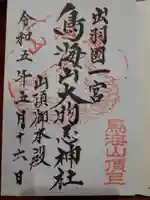 出羽國一宮
鳥海山大物忌神社
山頂御本殿
令和五年五月十六日
鳥海山頂